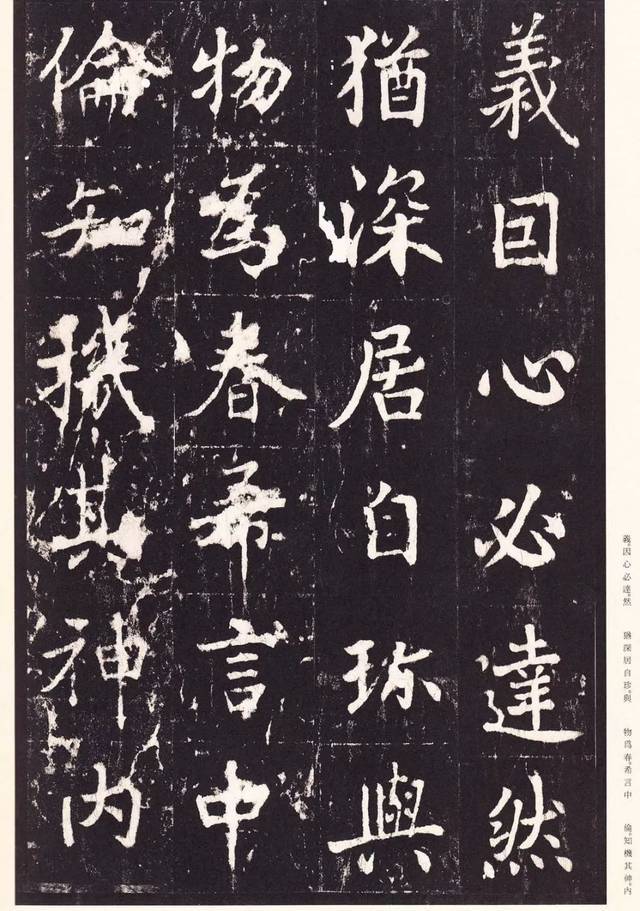 義因心必達然
猶深居自珎與
物為春希言中
倫知機其神內
義因心必達然
猶深居自珍與
物爲春希言中
倫知機其神內